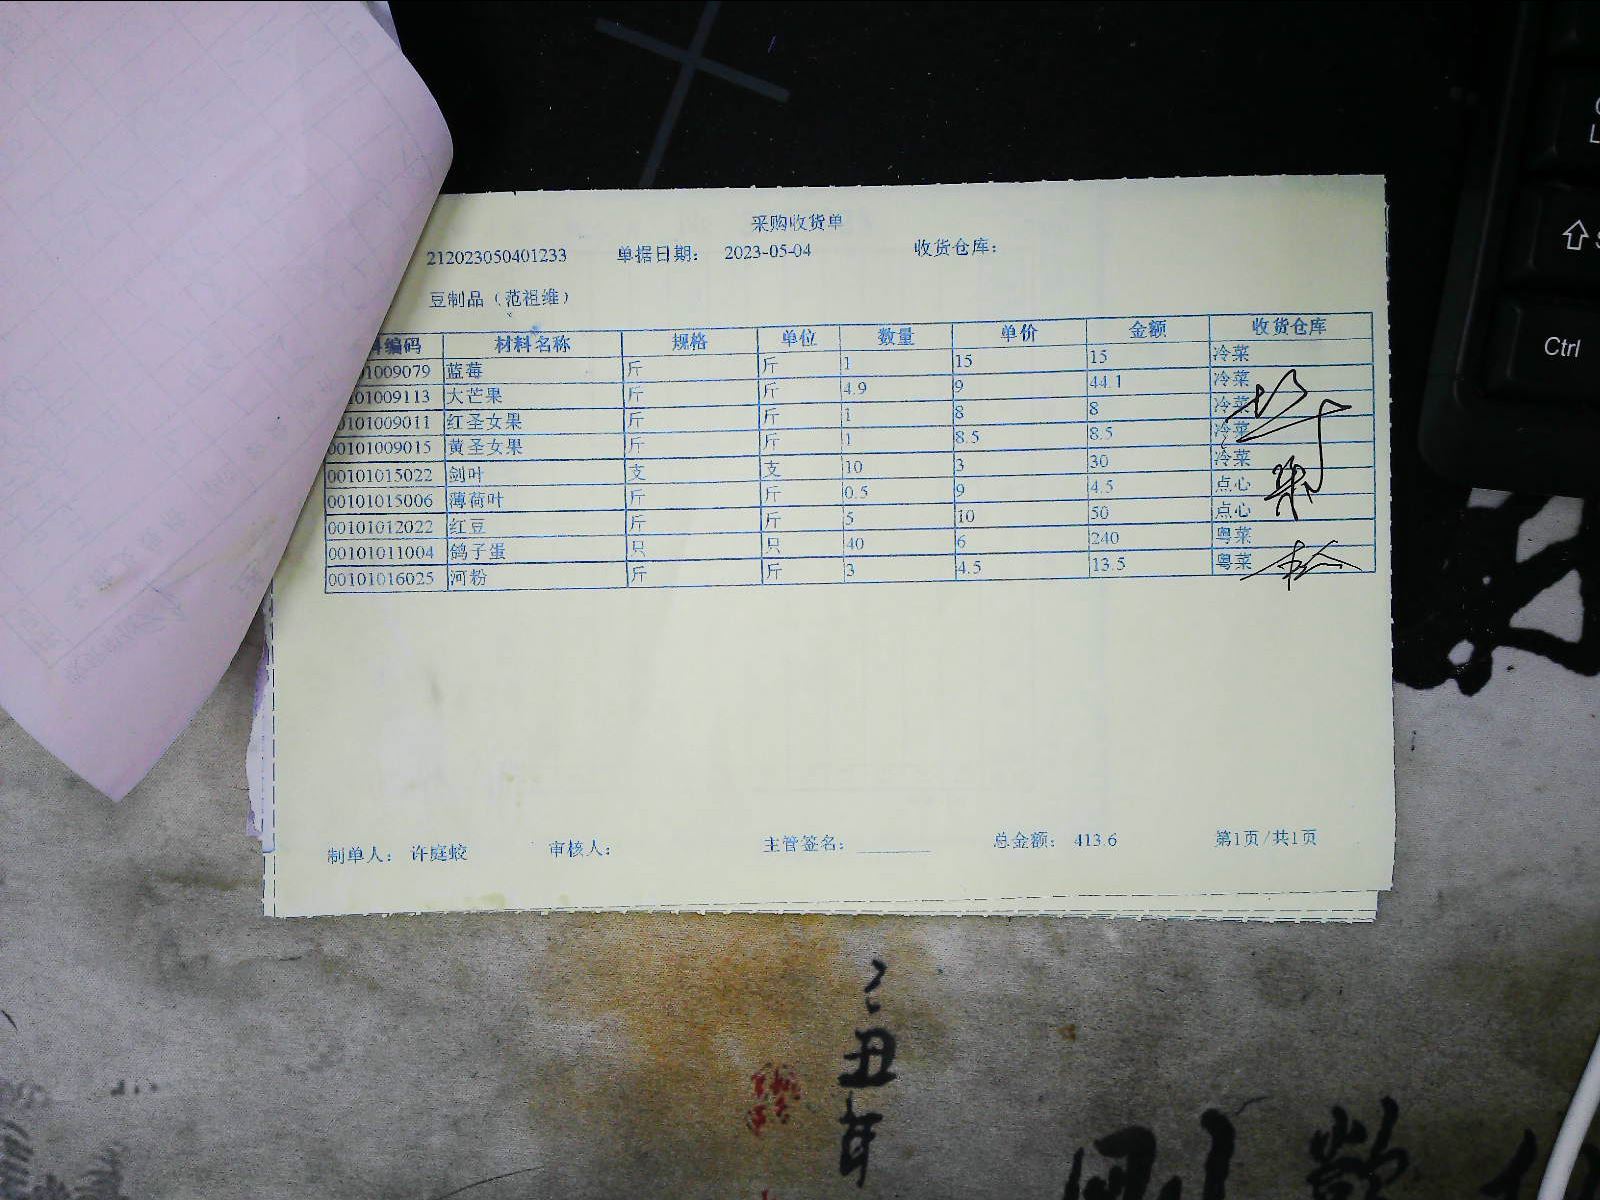 采购收货单
212023050401233 单据日期： 2023-05-04 收货仓库：
豆制品（范祖维）
编码 材料名称 规格 单位 数量 单价 金额 收货仓库
01009079 蓝莓 斤 斤 1 15 15 冷菜
0101009113 大芒果 斤 斤 4.9 9 44.1 冷菜
0101009011 红圣女果 斤 斤 1 8 8 冷菜
00101009015 黄圣女果 斤 斤 1 8.5 8.5 冷菜
00101015022 剑叶 支 支 10 3 30 冷菜
00101015006 薄荷叶 斤 斤 0.5 9 4.5 点心
00101012022 红豆 斤 斤 5 10 50 点心
00101011004 鸽子蛋 只 只 40 6 240 粤菜
00101016025 河粉 斤 斤 3 4.5 13.5 粤菜
制单人： 许庭蛟 审核人： 主管签名： 总金额： 413.6 第1页/共1页
Ctrl
丑年